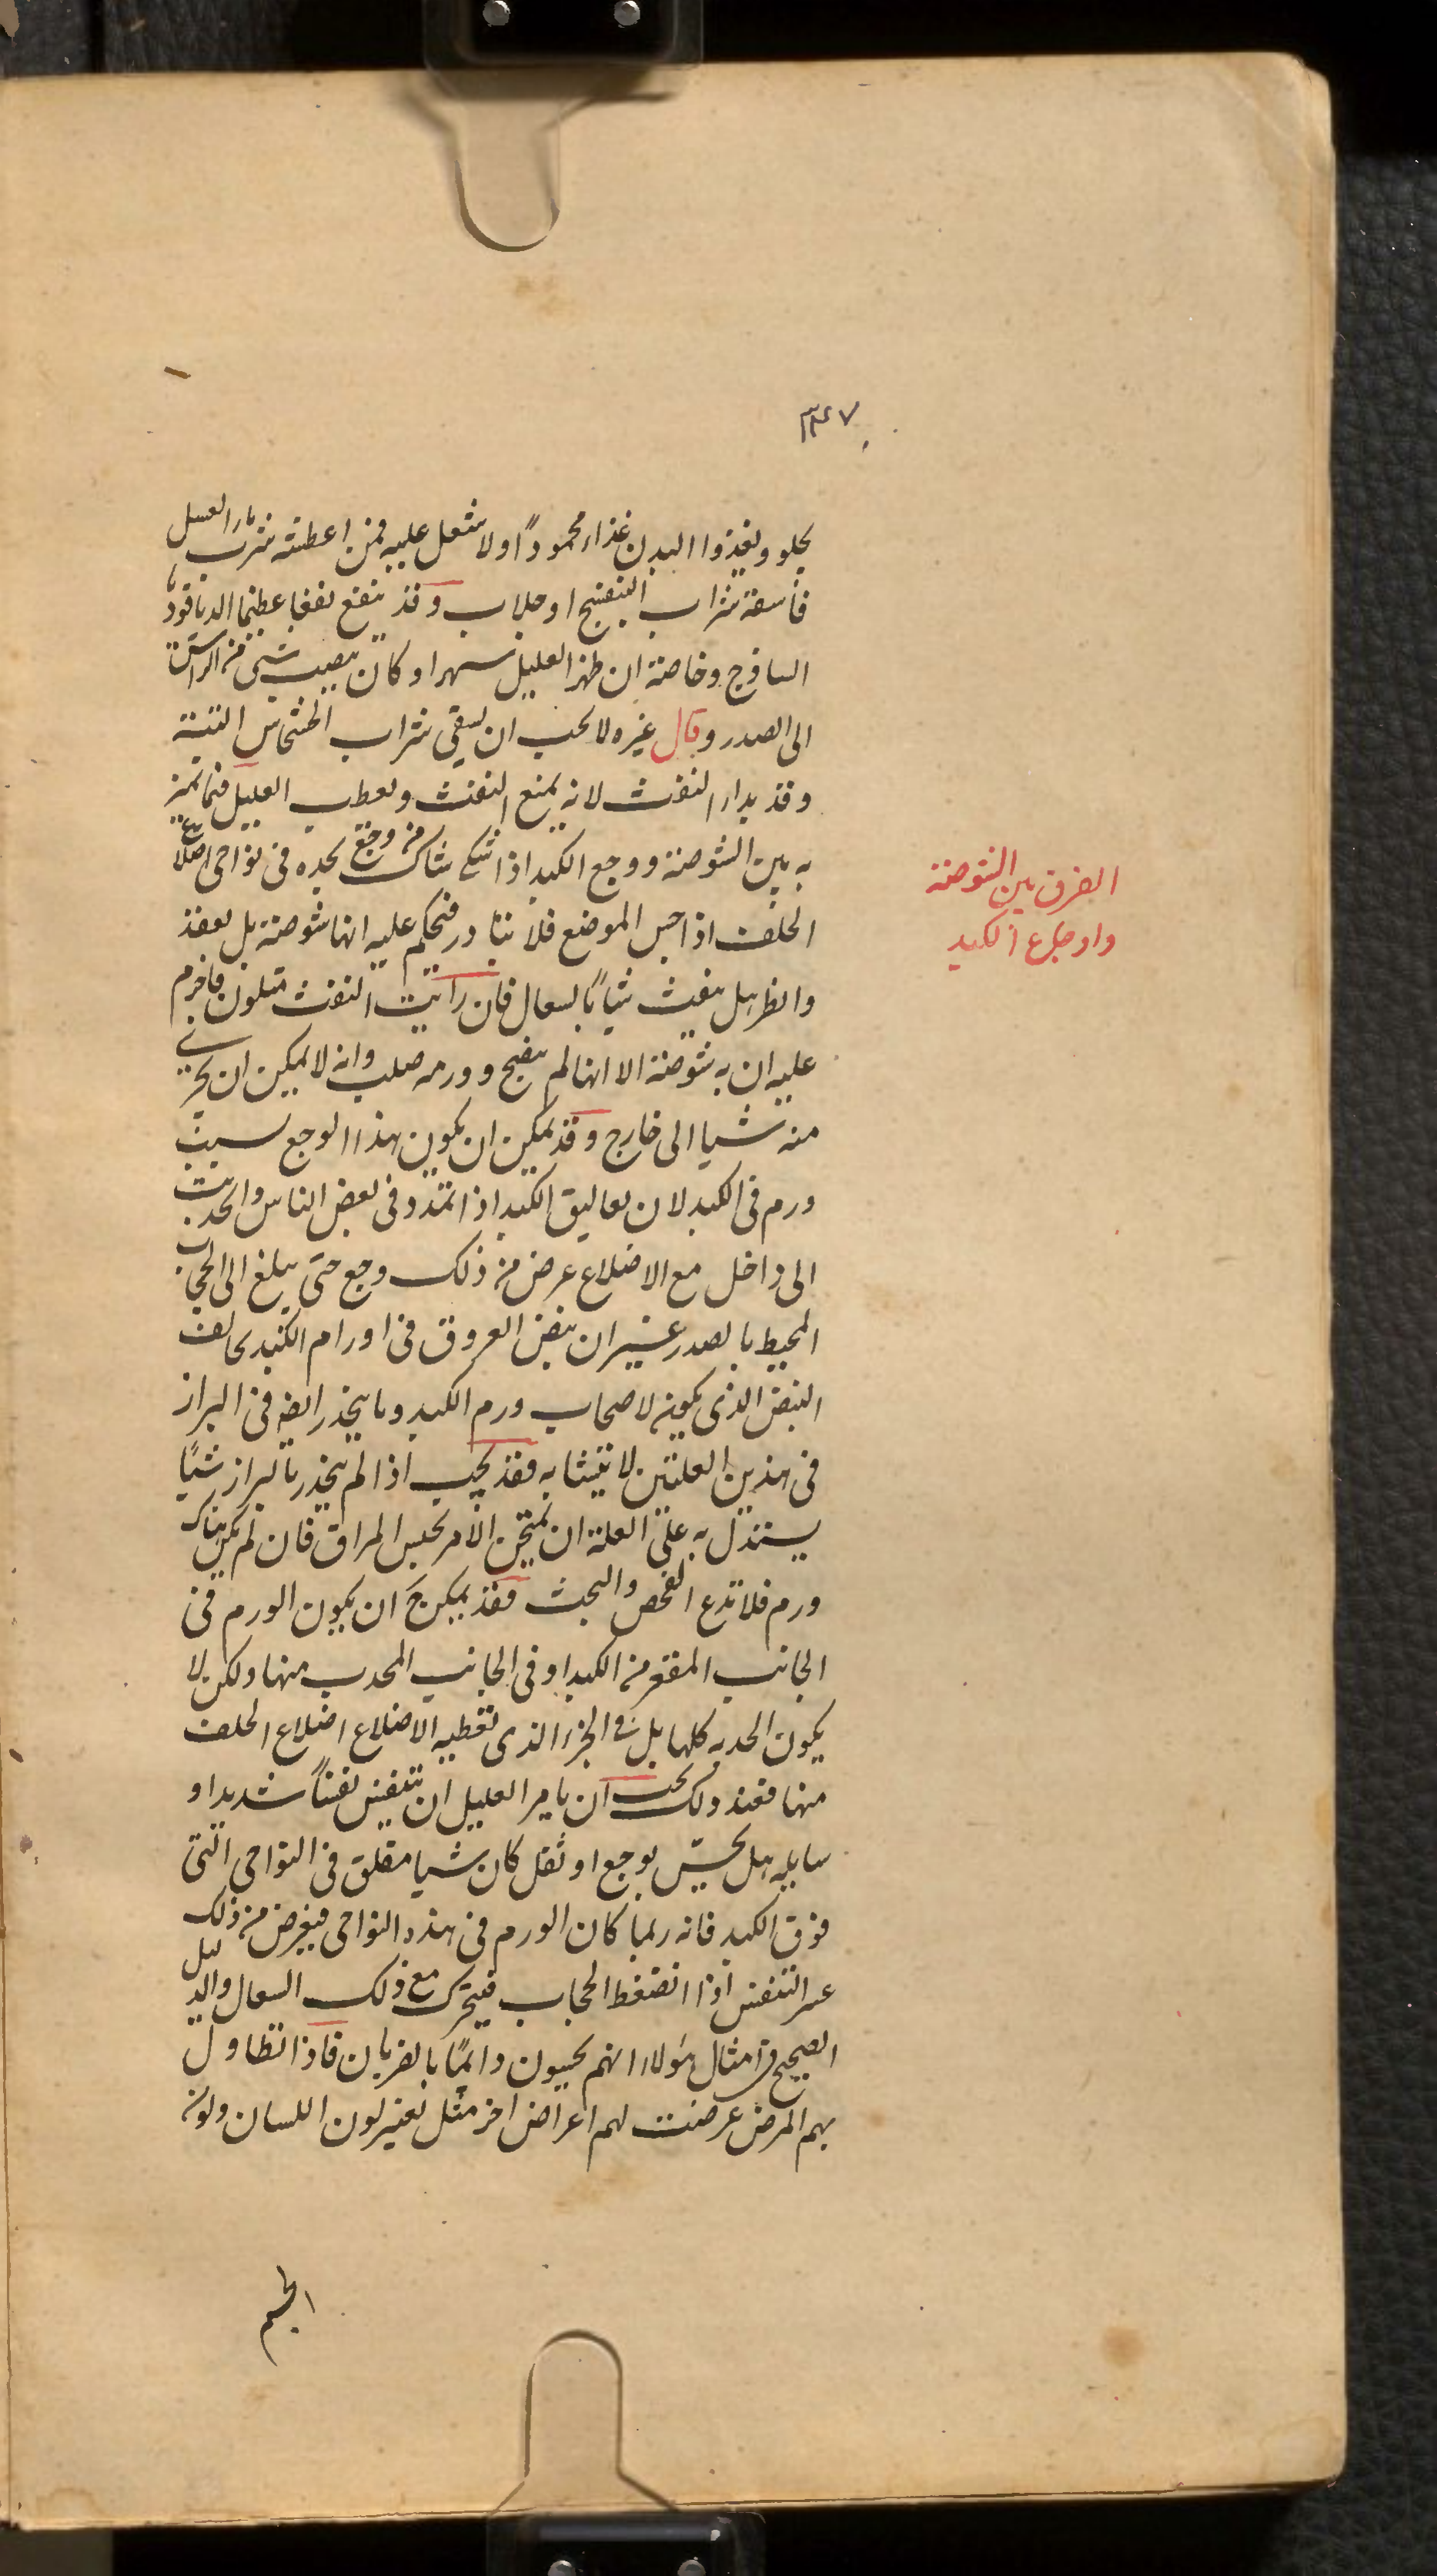 ٣٤٧
يجلو ويغذوا البدن غذاء محموداً ولا يثقل عليه فمن اعطشه شرب ماء العسل
فأسقه شراب البنفسج او جلاب وقد ينفع نفعا عظيما الدياقودا
الساذج وخاصة ان ظهر العليل سهرا وكان يصيب شى من الراس
الى الصدر وقال غيره لا يجب ان يسقى شراب الخشخاش البتة
وقد بدا النفث لانه يمنع النفث ويعطب العليل فيما يميز
به بين الشوصة ووجع الكبد اذا اشتكى شاك من وجع يجده فى نواحى اضلاع
الخلف اذا جس الموضع فلا تبادر فتحكم عليه انها شوصة بل تفقد
وانظر هل ينفث شياً بالسعال فان رايت النفث متلون فاجزم
عليه ان به شوصة الا انها لم ينضج وورمه صلب وانه لا يمكن ان يجرى
منه شيا الى خارج وقد يمكن ان يكون هذا الوجع بسبب
ورم فى الكبد لان معاليق الكبد اذا تمدد فى بعض الناس وانجذبت
الى داخل مع الاضلاع عرض من ذلك وجع حتى يبلغ الى الحجاب
المحيط بالصدر غير ان نبض العروق فى اورام الكبد يخالف
النبض الذى يكون لاصحاب ورم الكبد وما ينحدر ايضا فى البراز
فى هذين العلتين لا يتشابه فقد يجب اذا لم ينحدر بالبراز شيًا
يستدل به على العلة ان يمتحن الامر بجس المراق فان لم يكن هناك
ورم فلا تدع الفحص والبحث فقد يمكن ح ان يكون الورم فى
الجانب المقعر من الكبد او فى الجانب المحدب منها ولكن لا
يكون الحدبه كلها بل فى الجزء الذى تغطيه الاضلاع اضلاع الخلف
منها فعند ذلك يجب ان يامر العليل ان يتنفس نفساً شديدا و
سايله هل يحسّ بوجع او ثقل كان شيا مقلق فى النواحى التى
فوق الكبد فانه ربما كان الورم فى هذه النواحى فيعرض من ذلك
عسر التنفس اذا انضغط الحجاب فيتحرك مع ذلك السعال والدليل
الصحيح فى امثال هولاء انهم يحسون دائمًا بالضربان فاذا تطاول
بهم المرض عرضت لهم اعراض اخر مثل تغير لون اللسان ولون
الجسم
الفرق بين الشوصة
واوجاع الكبد